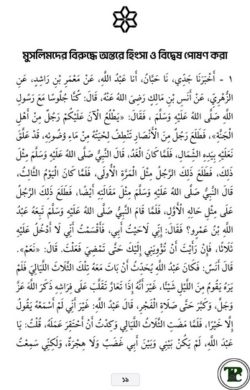 মুসলিমদের বিরুদ্ধে অন্তরে হিংসা ও বিদ্বেষ পোষণ করা
١ - أَخْبَرَنَا جَدِّي، نَا حَبَّانُ، أَنَا عَبْدُ اللَّهِ، عَنْ مَعْمَرِ بْنِ رَاشِدٍ، عَنِ
الزُّهْرِيِّ، عَنْ أَنَسِ بْنِ مَالِكٍ رَضِيَ اللهُ عَنْهُ، قَالَ: كُنَّا جُلُوسًا مَعَ رَسُولِ
اللَّهِ صَلَّى اللهُ عَلَيْهِ وَسَلَّمَ، فَقَالَ: «يَطْلُعُ الْآنَ عَلَيْكُمْ رَجُلٌ مِنْ أَهْلِ
الْجَنَّةِ»، فَطَلَعَ رَجُلٌ مِنَ الْأَنْصَارِ تَنْطِفُ لِحْيَتُهُ مِنْ مَاءِ وُضُوئِهِ، قَدْ عَلَّقَ
نَعْلَيْهِ بِيَدِهِ الشِّمَالِ، فَلَمَّا كَانَ الْغَدُ، قَالَ النَّبِيُّ صَلَّى اللهُ عَلَيْهِ وَسَلَّمَ مِثْلَ
ذَلِكَ، فَطَلَعَ ذَلِكَ الرَّجُلُ مِثْلَ الْمَرَّةِ الْأُولَى، فَلَمَّا كَانَ الْيَوْمُ الثَّالِثُ،
قَالَ النَّبِيُّ صَلَّى اللهُ عَلَيْهِ وَسَلَّمَ مِثْلَ مَقَالَتِهِ أَيْضًا، فَطَلَعَ ذَلِكَ الرَّجُلُ
عَلَى مِثْلِ حَالِهِ الْأُولَى، فَلَمَّا قَامَ النَّبِيُّ صَلَّى اللهُ عَلَيْهِ وَسَلَّمَ تَبِعَهُ عَبْدُ
اللَّهِ بْنُ عَمْرٍو؟ فَقَالَ: إِنِّي لَاحَيْتُ أَبِي، فَأَقْسَمْتُ أَنِّي لَا أَدْخُلُ عَلَيْهِ
ثَلَاثًا، فَإِنْ رَأَيْتَ أَنْ تُؤْوِيَنِي إِلَيْكَ حَتَّى تَمْضِيَ فَعَلْتَ. قَالَ: «نَعَمْ».
قَالَ أَنَسٌ: فَكَانَ عَبْدُ اللَّهِ يُحَدِّثُ أَنَّهُ بَاتَ مَعَهُ تِلْكَ الثَّلَاثَ اللَّيَالِيَ فَلَمْ
يَرَهُ يَقُومُ مِنَ اللَّيْلِ شَيْئًا، غَيْرَ أَنَّهُ إِذَا تَعَارَّ تَقَلَّبَ عَلَى فِرَاشِهِ ذَكَرَ اللَّهَ عَزَّ
وَجَلَّ، وَكَبَّرَ حَتَّى صَلَاةِ الْفَجْرِ. قَالَ عَبْدُ اللَّهِ: غَيْرَ أَنِّي لَمْ أَسْمَعْهُ يَقُولُ
إِلَّا خَيْرًا، فَلَمَّا مَضَتِ الثَّلَاثُ اللَّيَالِي وَكِدْتُ أَنْ أَحْتَقِرَ عَمَلَهُ، قُلْتُ: يَا
عَبْدَ اللَّهِ، لَمْ يَكُنْ بَيْنِي وَبَيْنَ أَبِي غَضَبٌ وَلَا هِجْرَةٌ، وَلَكِنِّي سَمِعْتُ
১৯